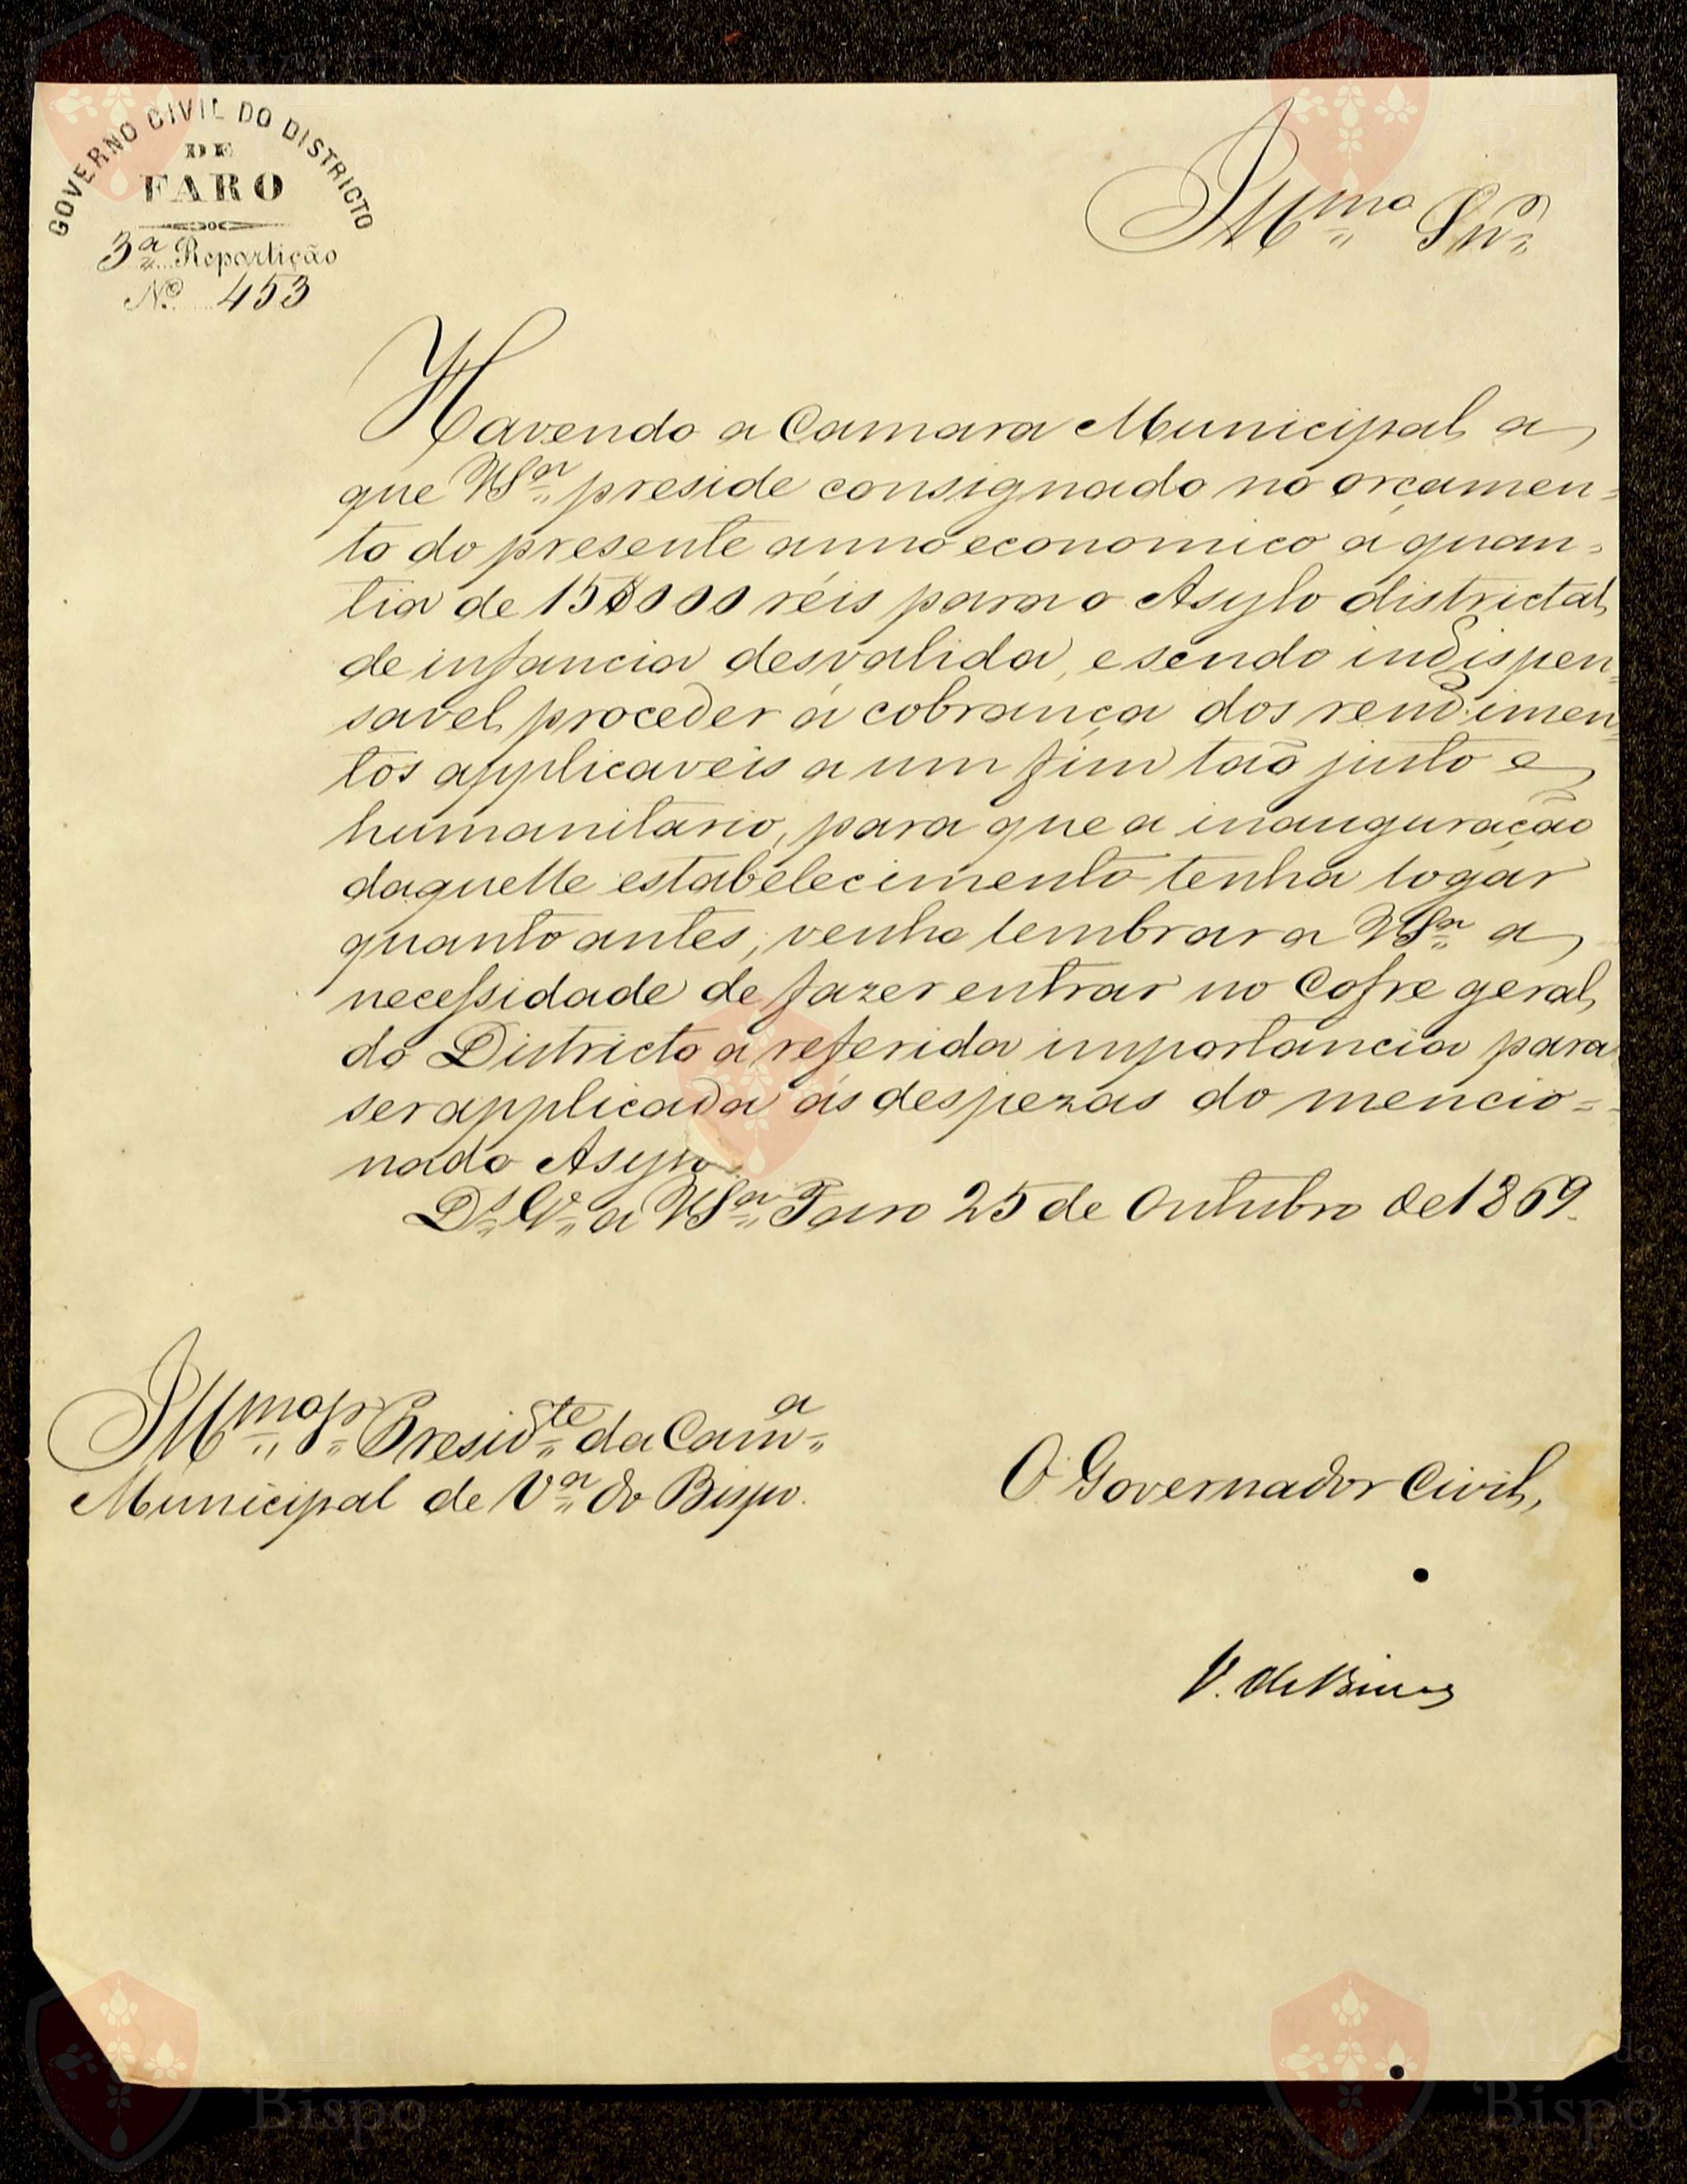 GOVERNO CIVIL DO DISTRICTO
DE
FARO
3.ª Repartição
N.º 453
Illmo Snr
Havendo a Camara Municipal a
que VSª preside consignado no orçamen=
to do presente anno economico a quan=
tia de 15$000 réis para o Asylo districtal
de infancia desvalida, e sendo indispen=
savel proceder á cobrança dos rendimen=
tos applicaveis a um fim tão justo e
humanitario, para que a inauguração
daquelle estabelecimento tenha logar
quanto antes, venho lembrar a VSª a
necessidade de fazer entrar no Cofre geral
do Districto a referida importancia para
ser applicada ás despezas do mencio=
nado Asylo.
Ds Ge a VSª Faro 25 de Outubro de 1869.
Illmo Sr Presidte da Camª
Municipal de Vª do Bispo.
O Governador Civil,
V. de
Vila do
Bispo
Vila do
Bispo